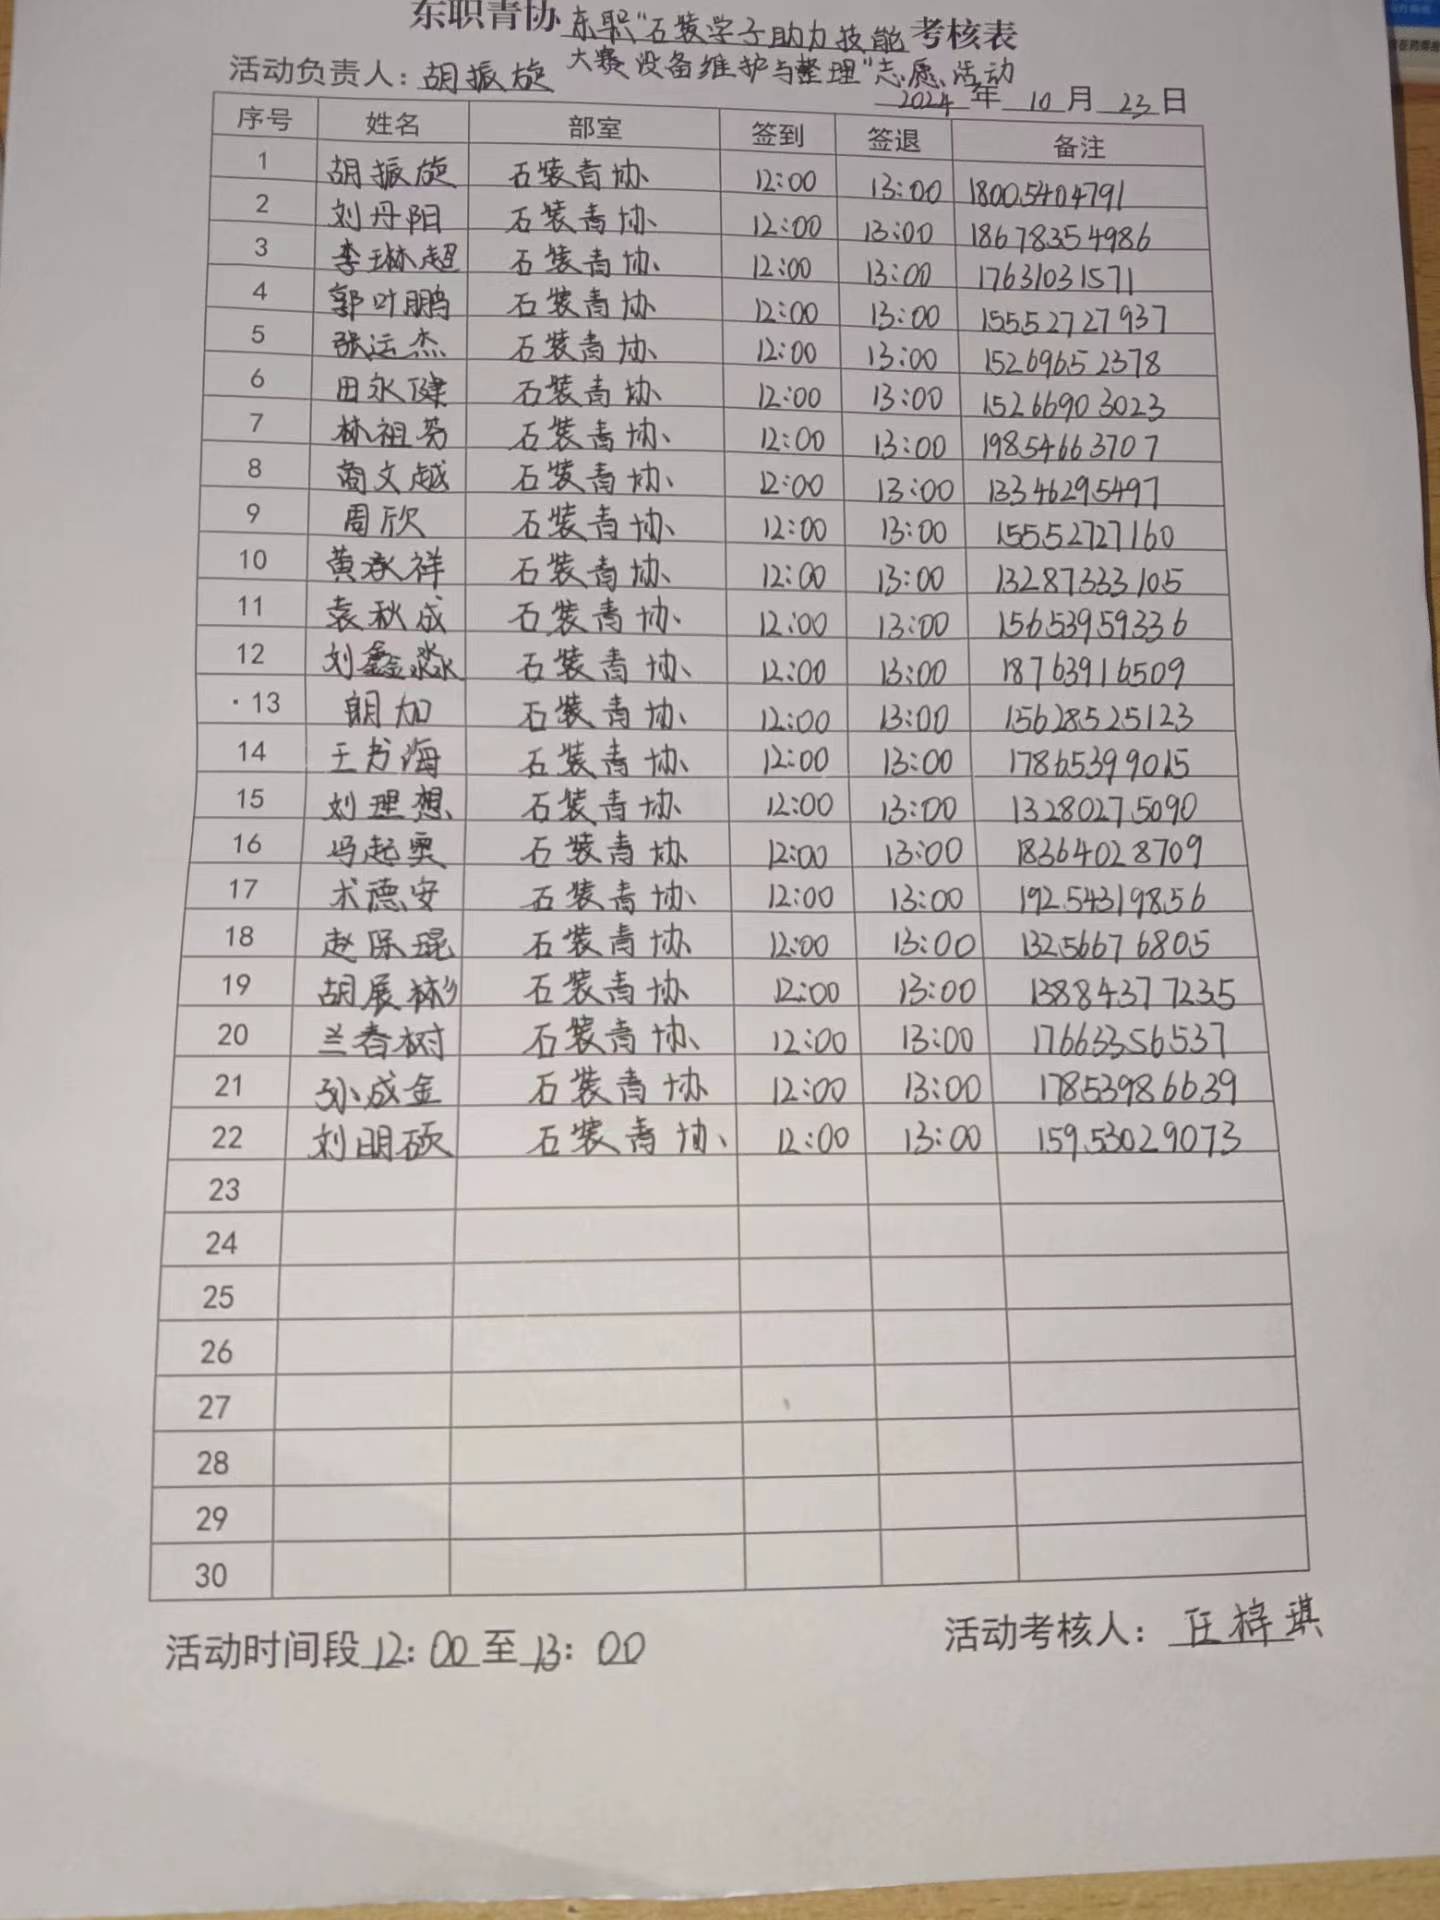 东职青协东职"石装学子助力技能考核表
大赛设备维护与整理"志愿活动
活动负责人：胡振旋
2024年10月23日
序号 姓名 部室 签到 签退 备注
1 胡振旋 石装青协 12:00 13:00 18005404791
2 刘丹阳 石装青协 12:00 13:00 18678354986
3 李琳超 石装青协 12:00 13:00 17631031571
4 郭叶鹏 石装青协 12:00 13:00 15552727937
5 张运杰 石装青协 12:00 13:00 15269652378
6 田永健 石装青协 12:00 13:00 15266903023
7 林祖芳 石装青协 12:00 13:00 19854663707
8 商文越 石装青协 12:00 13:00 13346295497
9 周欣 石装青协 12:00 13:00 15552727160
10 黄承祥 石装青协 12:00 13:00 13287333105
11 袁秋成 石装青协 12:00 13:00 15653959336
12 刘鑫淼 石装青协 12:00 13:00 18763916509
13 朗加 石装青协 12:00 13:00 15628525123
14 王书海 石装青协 12:00 13:00 17865399015
15 刘理想 石装青协 12:00 13:00 13280275090
16 冯起奥 石装青协 12:00 13:00 18364028709
17 术德安 石装青协 12:00 13:00 19254319856
18 赵保琨 石装青协 12:00 13:00 13256676805
19 胡展彬 石装青协 12:00 13:00 13884377235
20 兰春树 石装青协 12:00 13:00 17663356537
21 孙成金 石装青协 12:00 13:00 17853986639
22 刘明硕 石装青协 12:00 13:00 15953029073
23
24
25
26
27
28
29
30
活动时间段12:00至13:00
活动考核人：任梓琪